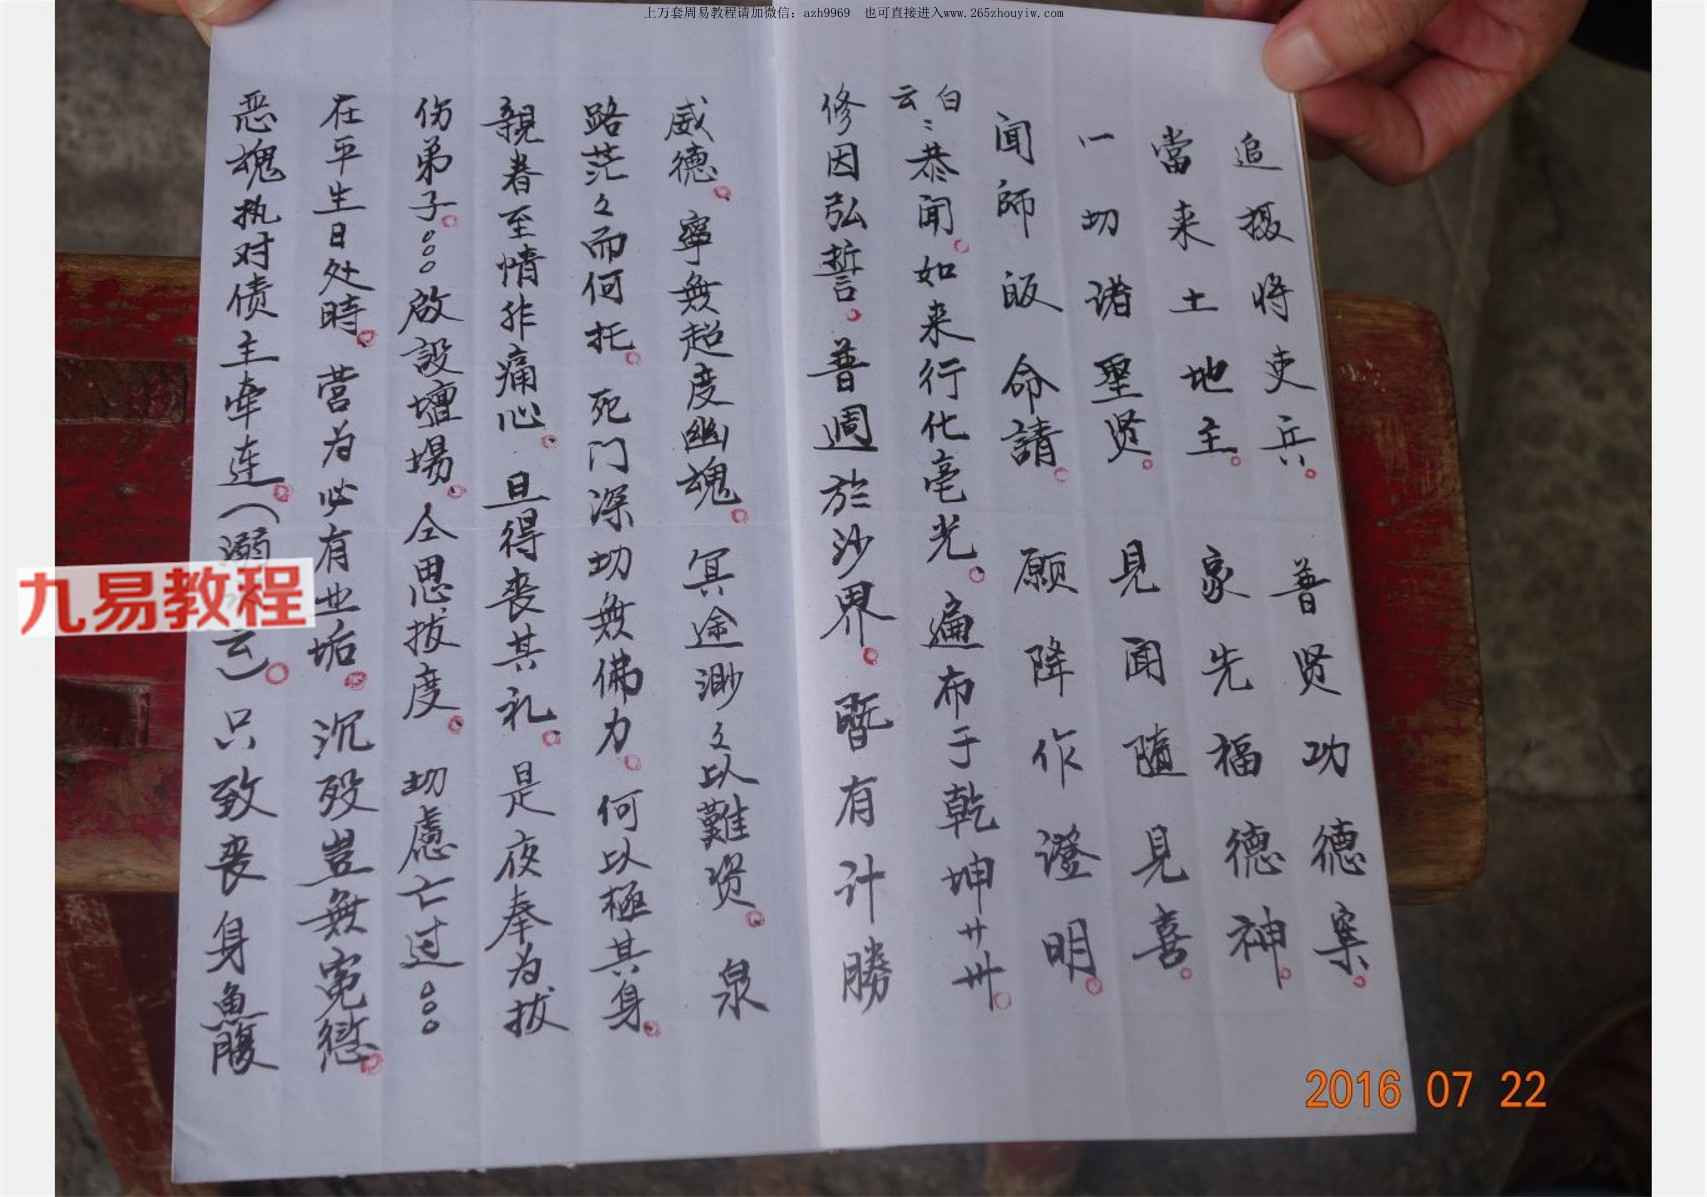 上万套周易教程请加微信：azh9969 也可直接进入www.265zhouyiw.com
追摄将吏兵。普贤功德案。
當来土地主。家先福德神。
一切诸聖贤。見闻随見喜。
闻師皈命請。願降作澄明。
白云：恭闻。如来行化毫光。遍布于乾坤廿卅。
修因弘誓。普週於沙界。暨有计勝
威德。寧無超度幽魂。冥途渺々以難资。泉
路茫々而何托。死门深切無佛力。何以極其身。
親眷至情非痛心。且得丧其礼。是夜奉为拔
伤弟子。ooo啟設壇場。仝思拔度。切慮亡过ooo
在平生日处時。营为必有业垢。沉殁豈無冤愆。
恶魂执对债主牵连。（溺 云）。只致丧身魚腹
九易教程
2016 07 22